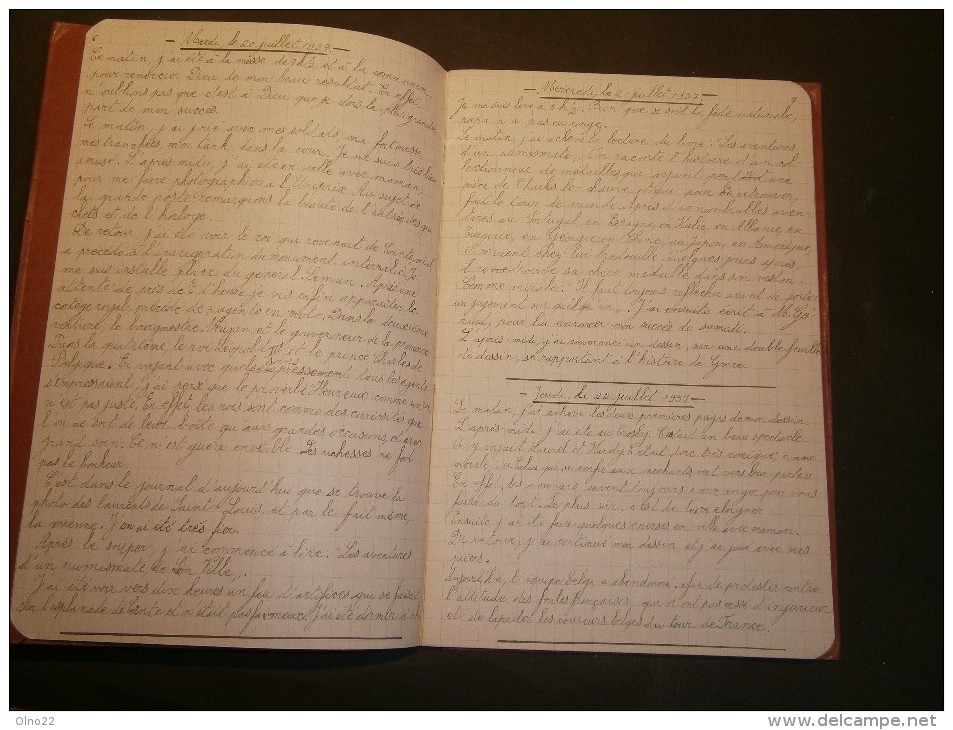 6
- Mardi le 20 juillet 1937 -
Ce matin, j'ai été à la messe de 7h½ et à la communion
pour remercier Dieu de mon beau résultat. En effet,
n'oublions pas que c'est à Dieu que je dois la plus grande
part de mon succès.
Le matin, j'ai joué avec mes soldats, ma forteresse,
mes tranchées, mon tank dans la cour. Je me suis très bien
amusé. L'après-midi, j'ai été en ville avec maman,
pour me faire photographier à l'Uniprix. Au sujet de
la grande poste remarquons la beauté de l'édifice, des
et de l'horloge.
De retour, j'ai été voir le roi qui revenait de Cointe, où il
a procédé à l'inauguration du monument interallié. Je
me suis installé place du général Leman. Après une
attente de près de d'heure, je vis enfin apparaître le
cortège royal précédé de 3 agents en moto. Dans la deuxième
voiture le bourgmestre et le gouverneur de la province
Dans la quatrième, le roi Léopold III et le prince Charles de
Belgique. En voyant avec quels soins empressement tous les agents
s'empressaient, j'ai pensé que le proverbe "Heureux comme un roi"
n'est pas juste. En effet, les rois sont comme des curiosités que
l'on ne sort de leur boîte qu'aux grandes occasions, et avec
grand soin. Ce n'est guère enviable. Les richesses ne font
pas le bonheur
C'est dans le journal d'aujourd'hui que se trouve la
photo des lauréats de Saint-Louis, et par le fait même,
la mienne. J'en ai été très fier.
Après le souper, j'ai commencé à lire: "Les aventures
d'un numismate" de Léon Ville.
J'ai été voir vers dix heures un feu d'artifices qui se faisait
sur l'esplanade de Cointe et n'était pas fameux. J'ai été dormir à
7
- Mercredi le 21 juillet 1937 -
Je me suis levé à 8 h ½. Bien que ce soit la fête nationale,
papa n'a pas eu congé.
Le matin, j'ai achevé la lecture du livre: "Les aventures
d'un numismate". On raconte l'histoire d'un col-
lectionneur de médailles qui, ayant perdu une
pièce de Charles le Chauve, et qui pour la retrouver,
fait le tour du monde. Après d'innombrables aven-
tures au Portugal, en Espagne, en Italie, en Allemagne, en
Turquie, en Chine, au Japon, en Amérique,
il revient chez lui bredouille. Quelques jours après,
il retrouve sa chère médaille dans son veston.
Comme morale: Il faut toujours réfléchir avant de porter
un jugement sur quelqu'un. J'ai ensuite écrit à Mr
pour lui annoncer mon succès de samedi.
L'après-midi, j'ai commencé un dessin, sur une double feuille
de dessin, se rapportant à l'histoire de Grèce.
- Jeudi, le 22 juillet 1937 -
Le matin, j'ai achevé les deux premières pages de mon dessin.
L'après-midi j'ai été au Crosly. C'était un beau spectacle
On y jouait Laurel et Hardy. C'était donc très comique. Comme
morale: "Celui qui se confie aux méchants, court vers leur perte".
En effet, les mauvais savent toujours s'arranger pour vous
faire du tort. Le plus sûr, c'est de les éloigner
Ensuite j'ai été faire quelques courses en ville avec maman.
De retour, j'ai continué mon dessin, et j'ai joué avec mes
Aujourd'hui, l'équipe belge a abandonné, afin de protester contre
l'attitude des foules françaises, qui n'ont pas cessé d'injurier
et de lapider les coureurs belges du tour de France.
Olno22
www.delcampe.net